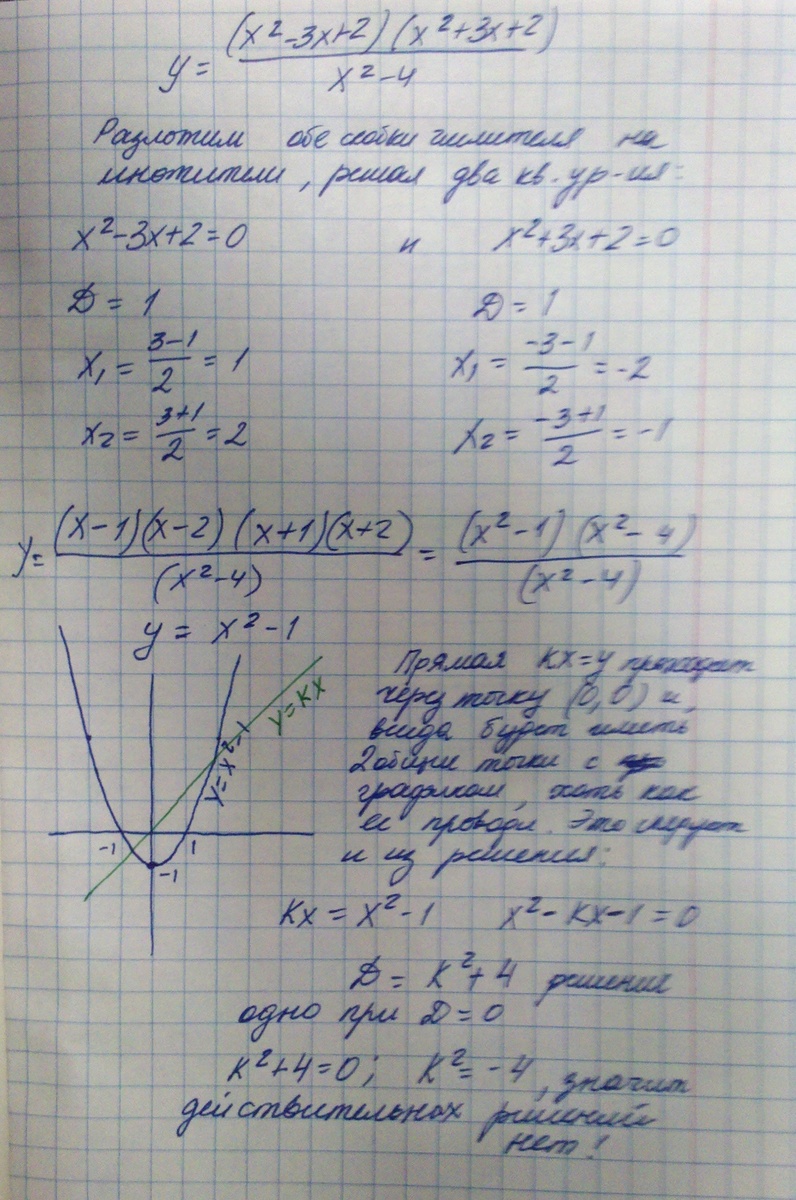 y = (x²-3x+2)(x²+3x+2) / x²-4
Разложим обе скобки числителя на
множители, решая два кв. ур-ия:
x²-3x+2=0 и x²+3x+2=0
D = 1 D = 1
x₁ = 3-1/2 = 1 x₁ = -3-1/2 = -2
x₂ = 3+1/2 = 2 x₂ = -3+1/2 = -1
y = (x-1)(x-2)(x+1)(x+2) / (x²-4) = (x²-1)(x²-4) / (x²-4)
y = x²-1
y=kx
y=x²-1
-1 1
-1
Прямая kx=y проходит
через точку (0,0) и
всегда будет иметь
2 общие точки с
графиком, хоть как
ее проводи. Это следует
и из решения:
kx = x²-1 x²-kx-1=0
D = k²+4 решение
одно при D=0
k²+4=0; k²=-4, значит
действительных решений
нет!